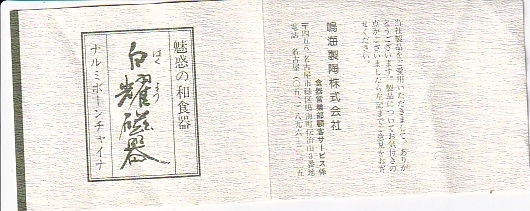 当社製品をご愛用いただきまして、ありが
とうございます。製品についてお気付きの
点がございましたら左記までご意見をお寄
せください。
鳴海製陶株式会社
食器営業部顧客サービス係
名古屋市緑区鳴海町伝治山3番地
電話 名古屋
魅惑の和食器
はく よう
白耀磁器
ナルミボーンチャイナ